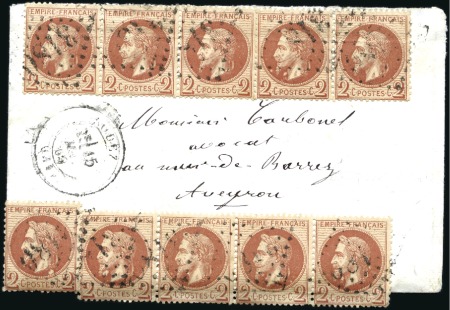 EMPIRE FRANÇAIS EMPIRE FRANÇAIS EMPIRE FRANÇAIS EMPIRE FRANÇAIS EMPIRE FRANÇAIS
2 C POSTES C 2 2 C POSTES C 2 2 C POSTES C 2 2 C POSTES C 2 2 C POSTES C 2
Monsieur Carbonel
avocat
au mur-de-Barrez
Aveyron
EMPIRE FRANÇAIS EMPIRE FRANÇAIS EMPIRE FRANÇAIS EMPIRE FRANÇAIS EMPIRE FRANÇAIS
2 C POSTES C 2 2 C POSTES C 2 2 C POSTES C 2 2 C POSTES C 2 2 C POSTES C 2